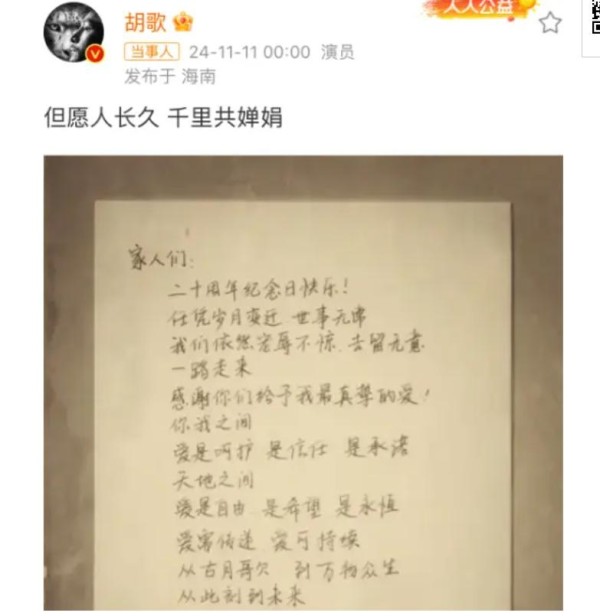 人人公益
胡歌
当事人 24-11-11 00:00 演员
发布于 海南
但愿人长久 千里共婵娟
家人们:
二十周年纪念日快乐!
任凭岁月变迁 世事无常
我们依然宠辱不惊 去留无意
一路走来
感谢你们给予我最真挚的爱!
你我之间
爱是呵护 是信任 是承诺
天地之间
爱是自由 是希望 是永恒
爱需传递 爱可持续
从古月哥欠 到万物众生
从此刻到未来